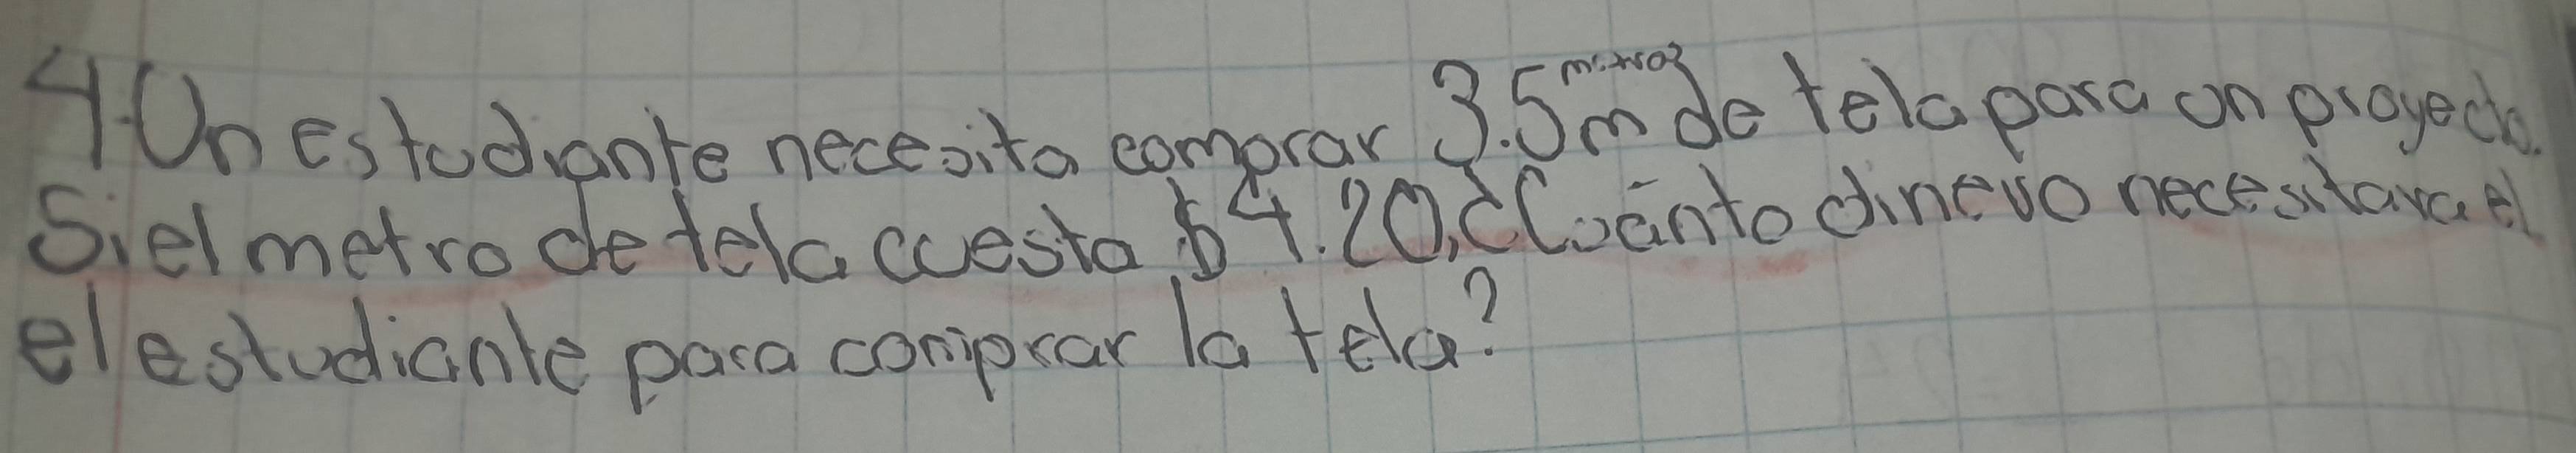 4.Un estudiante necesita comprar 3.5m metros de tela para un proyecto.
Si el metro de tela cuesta $4.20, ¿Cuánto dinero necesitara el
el estudiante para comprar la tela?